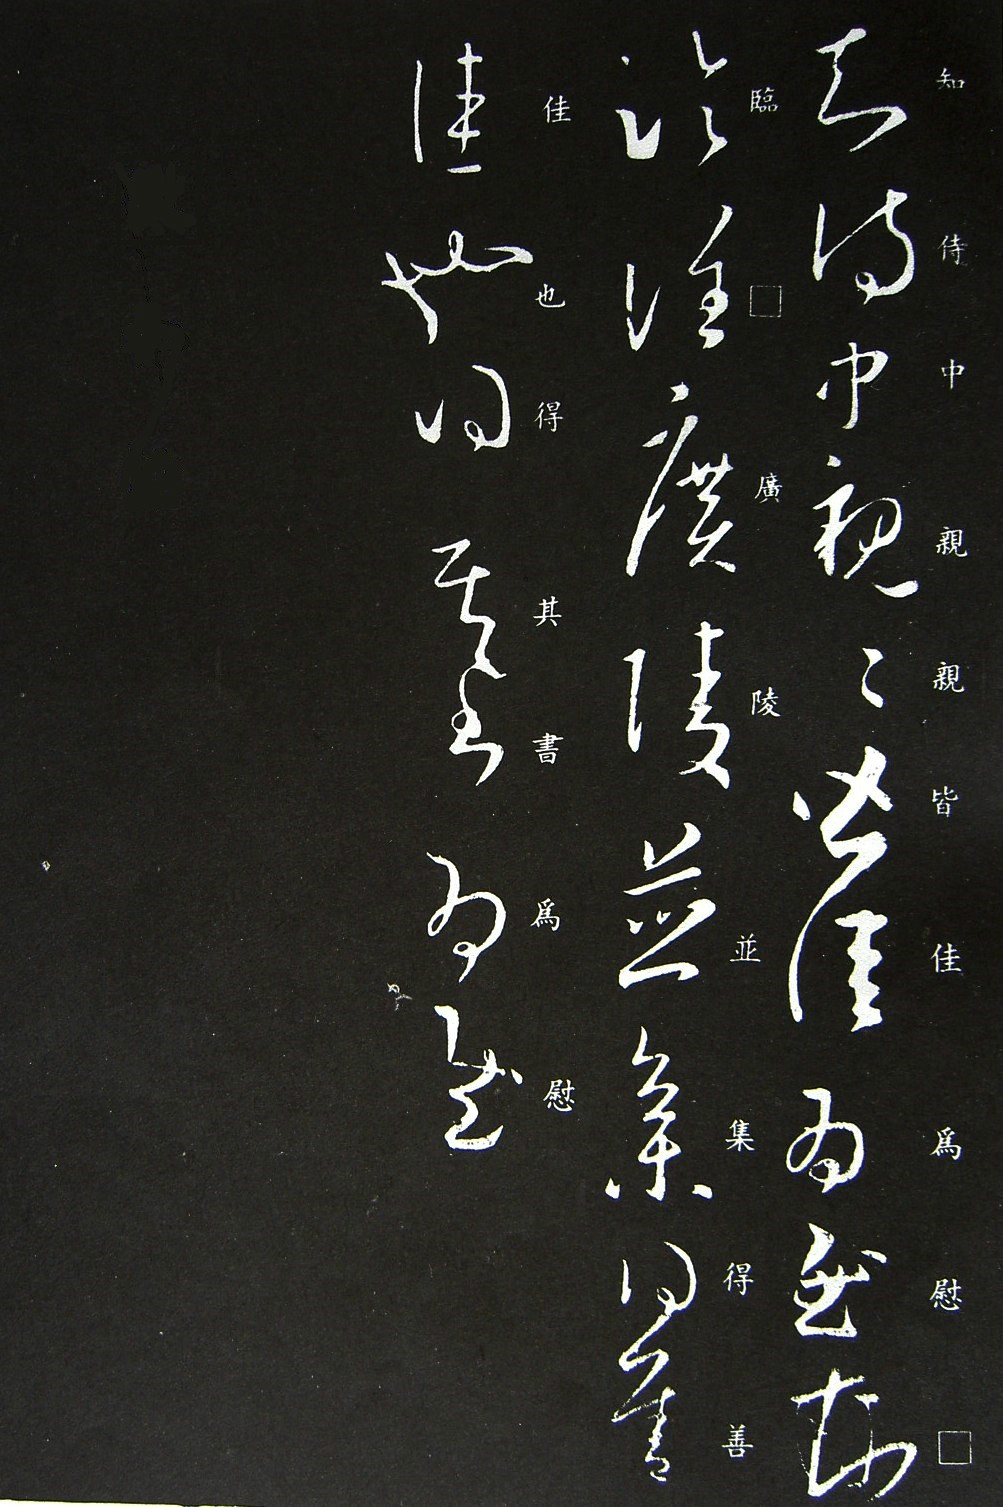 知侍中親親皆佳為慰□
臨□廣陵並集得善
佳也得其書為慰